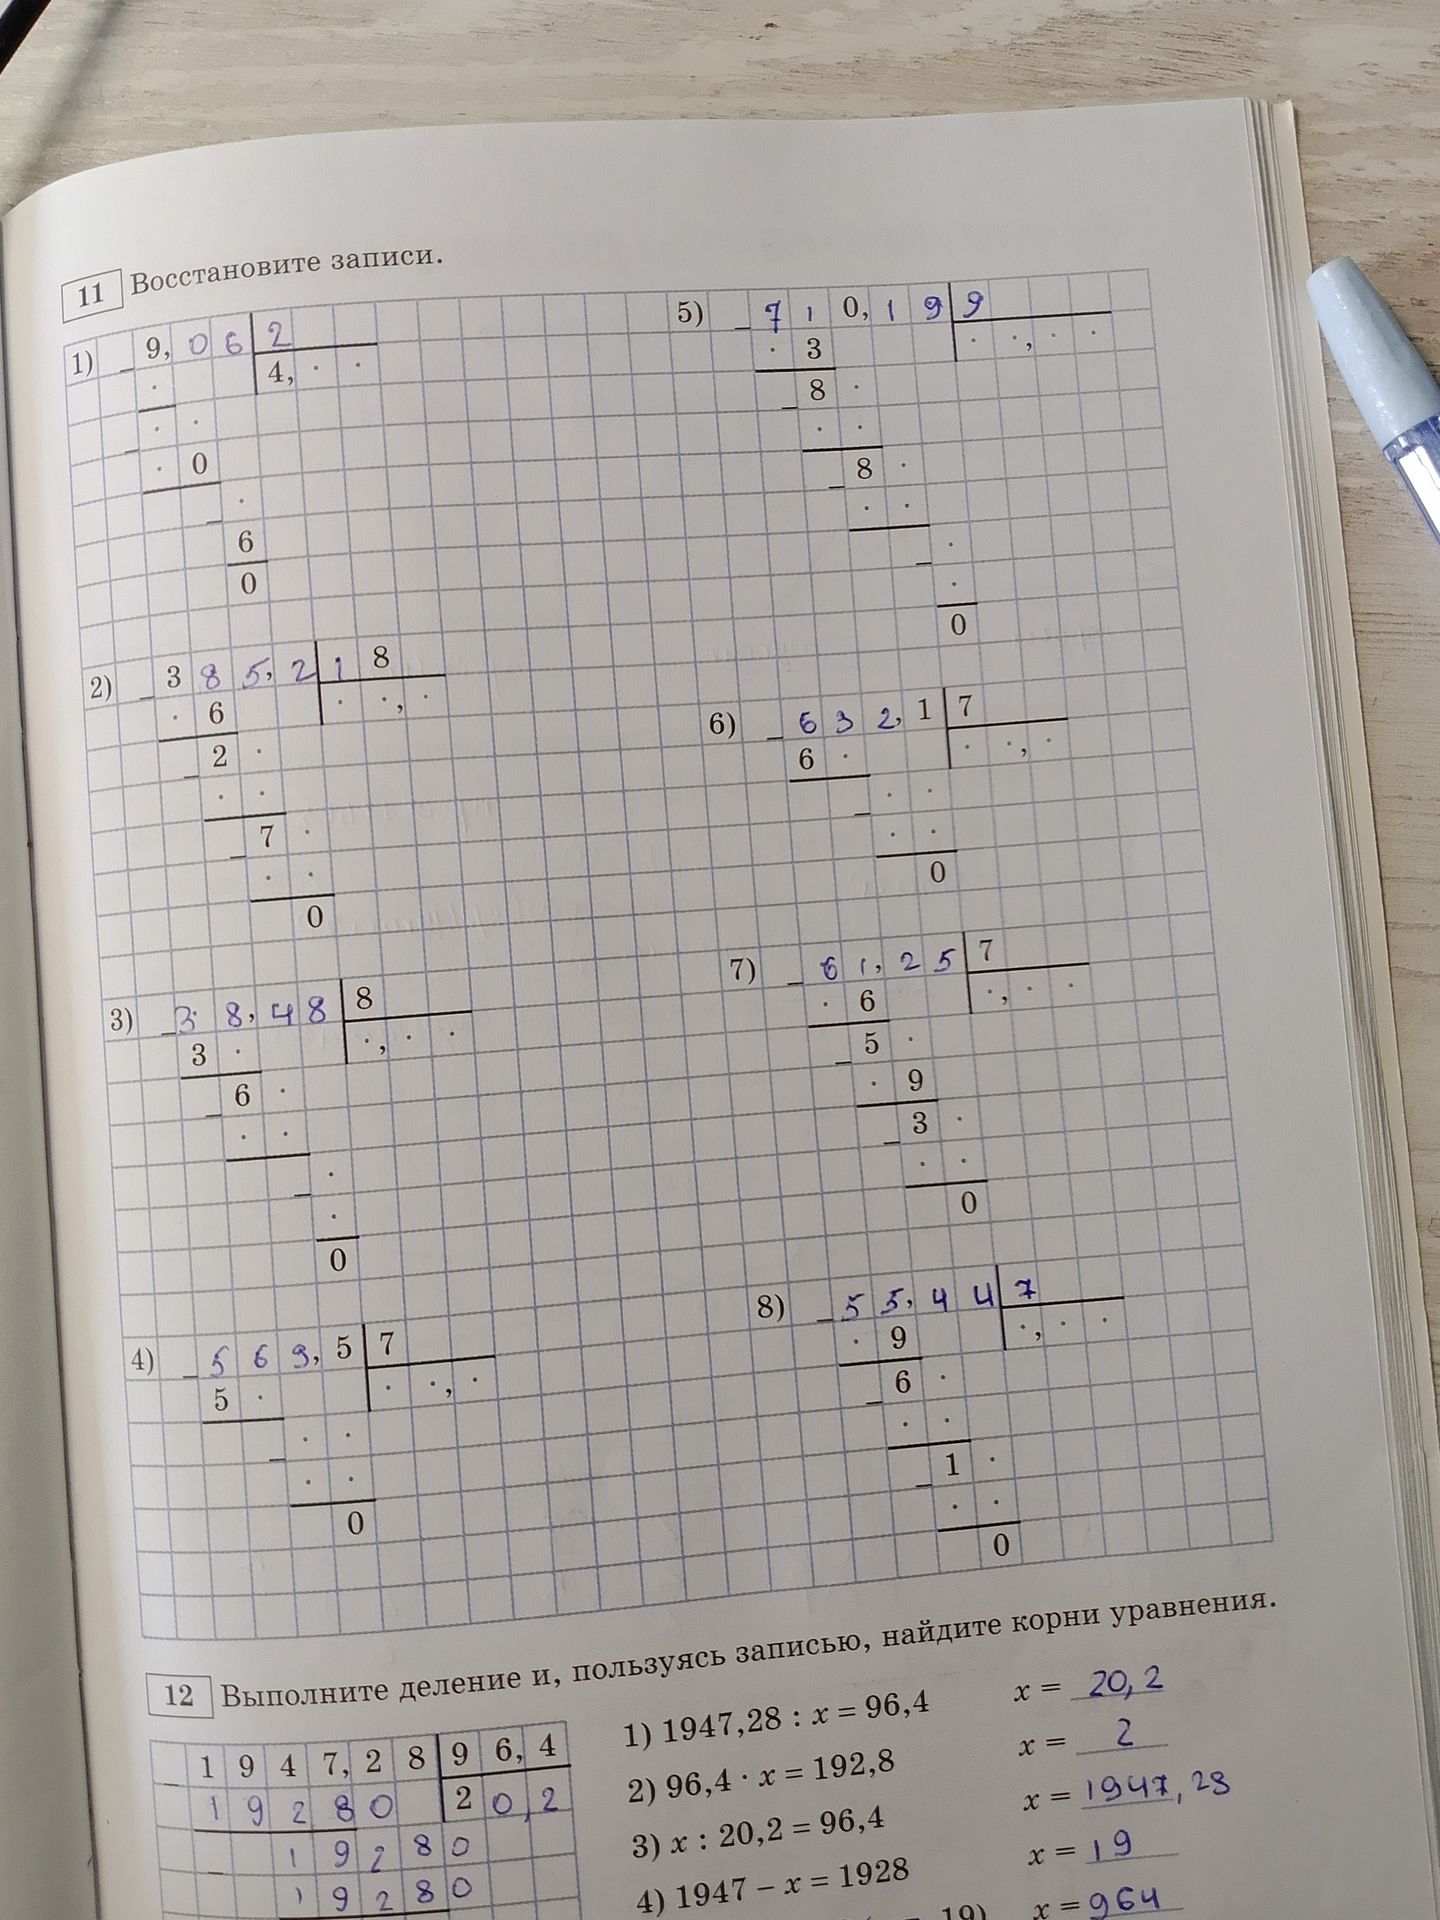 11 Восстановите записи.
1) _ 9, 0 6 2
. 4, . .
_ . .
. 0
_ .
6
0
2) _ 3 8 5, 2 1 8
. 6 . ., .
_ 2 .
. .
_ 7 .
. .
0
3) _ 3 8, 4 8 8
3 . ., . .
_ 6 .
. .
_ .
.
0
4) _ 5 6 9, 5 7
5 . . ., .
_ . .
. .
0
5) _ 7 1 0, 1 9 9
. 3 . ., . .
_ 8 .
. .
_ 8 .
. .
_ .
.
0
6) _ 6 3 2, 1 7
6 . . ., .
_ . .
. .
0
7) _ 6 1, 2 5 7
. 6 ., . .
_ 5 .
. 9
_ 3 .
. .
0
8) _ 5 5, 4 4 7
. 9 ., . .
_ 6 .
. .
_ 1 .
. .
0
12 Выполните деление и, пользуясь записью, найдите корни уравнения.
_ 1 9 4 7, 2 8 9 6, 4
1 9 2 8 0 2 0, 2
_ 1 9 2 8 0
1 9 2 8 0
1) 1947,28 : x = 96,4 x = 20,2
2) 96,4 · x = 192,8 x = 2
3) x : 20,2 = 96,4 x = 1947,28
4) 1947 – x = 1928 x = 19
19) x = 964